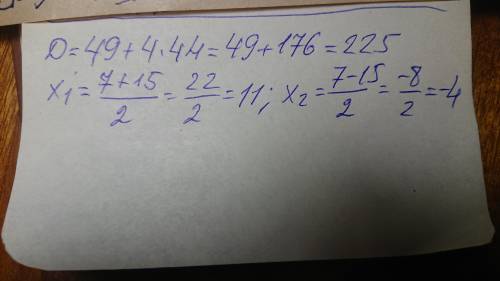 D=49+4·44=49+176=225
x₁=7+15/2=22/2=11; x₂=7-15/2=-8/2=-4